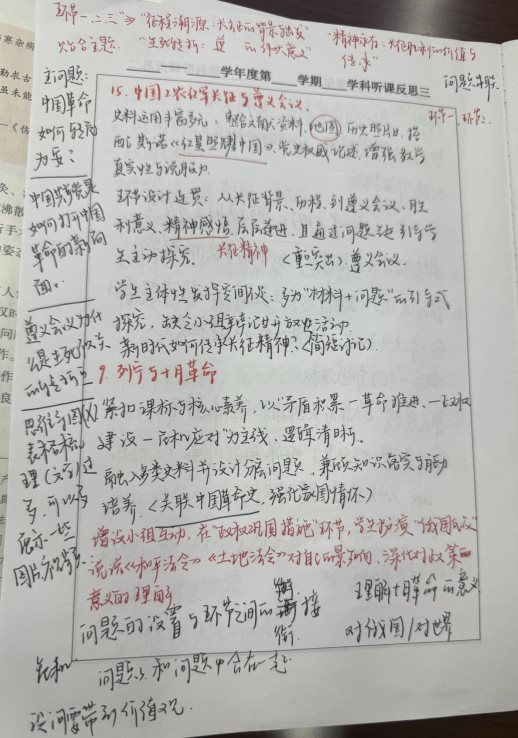 环节一、二、三 ⇒ "征程溯源：长征的背景与缘
"精神永存：长征胜利的价值与
贴合主题. "生死转折：遵 的伟大意义"
传承"
学年度第 学期 学科听课反思三
问题串联
主问题：
中国革命
如何转危
为安？
中国共产党是
如何打开中国
革命的新局
面.
遵义会议为什
么是生死攸关
的转折
思维导图
表格梳
理（文字）过
多，可以多
展示一些
图片示意等
15. 中国工农红军长征与遵义会议.
环节一、环节2.
史料运用丰富多元：整合文献资料、地图、历史照片，搭
配斯诺《红星照耀中国》、党史权威论述，增强教学
真实性与说服力.
环节设计连贯：从长征背景、历程，到遵义会议、胜
利意义、精神感悟，层层递进，且通过问题链引导学
生主动探究. 长征精神 〈重突出〉遵义会议.
学生主体性发挥空间不足：多为"材料+问题"的引导式
探究，缺乏小组辩论等开放性活动.
新时代如何传承长征精神？（简短讨论）.
9. 列宁与十月革命
紧扣课标与核心素养，以"矛盾积累—革命推进—政权
建设—危机应对"为主线，逻辑清晰.
融入多类史料并设计分层问题，兼顾知识落实与能力
培养.〈关联中国革命史，强化家国情怀〉
增设小组互动，在"政权巩固措施"环节，学生扮演"俄国农民"
说说《和平法令》《土地法令》对自己的影响，深化对政策
意义的理解
问题的设置与环节之间的衔接
理解十月革命的意义
对俄国/对世界
问题3.和问题4合在一起
设问要带到价值观.